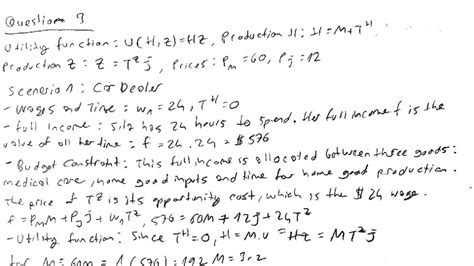 Question 3
Utility function: U(H,Z)=HZ, Production H: H=M+T^H,
Production Z: Z=T^Z j, Prices: P_m=60, P_j=12
Scenerio 1: Car Dealer
- Wages and Time: w_1=24, T^H=0
- full Income: Silz has 24 hours to spend. Her full income f is the
value of all her time: f=24.24=$576
- Budget Constraint: This full income is allocated between three goods:
medical care, home good inputs and time for home good production.
The price of TZ is its opportunity cost, which is the $24 wage.
f=P_m M+P_j j+w_1 T^Z, 576=60M+12j+24T^Z
- Utility function: Since T^H=0, H=M. U=HZ=MT^Z j
for M: 60M=1(576):192 M=3.2